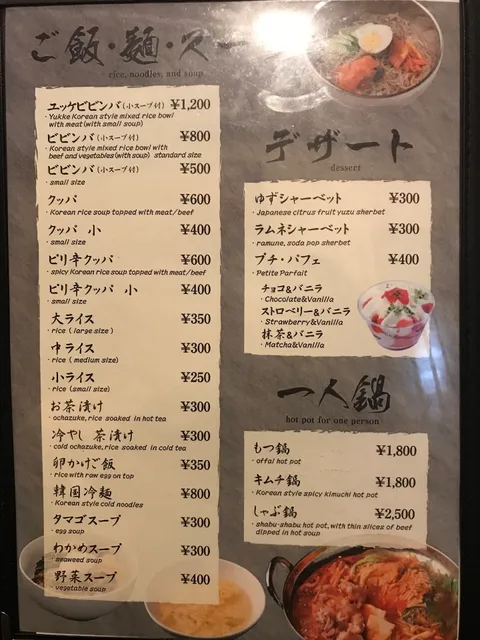 ご飯・麺・スープ
rice, noodles, and soup
ユッケビビンバ(小スープ付) ¥1,200
・Yukke Korean style mixed rice bowl
with meat(with small soup)
ビビンバ(小スープ付) ¥800
・Korean style mixed rice bowl with
beef and vegetables(with soup) standard size
ビビンバ(小スープ付) ¥500
・small size
クッパ ¥600
・Korean rice soup topped with meat/beef
クッパ 小 ¥400
・small size
ピリ辛クッパ ¥600
・spicy Korean rice soup topped with meat/beef
ピリ辛クッパ 小 ¥400
・small size
大ライス ¥350
・rice ( large size )
中ライス ¥300
・rice ( medium size)
小ライス ¥250
・rice (small size)
お茶漬け ¥300
・ochazuke, rice soaked in hot tea
冷やし 茶漬け ¥300
・cold ochazuke, rice soaked in cold tea
卵かけご飯 ¥350
・rice with raw egg on top
韓国冷麺 ¥800
・Korean style cold noodles
タマゴスープ ¥300
・egg soup
わかめスープ ¥300
・seaweed soup
野菜スープ ¥400
・vegetable soup
デザート
dessert
ゆずシャーベット ¥300
・Japanese citrus fruit yuzu sherbet
ラムネシャーベット ¥300
・ramune, soda pop sherbet
プチ・パフェ ¥400
・Petite Parfait
チョコ&バニラ
・Chocolate&Vanilla
ストロベリー&バニラ
・Strawberry&Vanilla
抹茶&バニラ
・Matcha&Vanilla
一人鍋
hot pot for one person
もつ鍋 ¥1,800
・offal hot pot
キムチ鍋 ¥1,800
・Korean style spicy kimuchi hot pot
しゃぶ鍋 ¥2,500
・shabu-shabu hot pot, with thin slices of beef
dipped in hot soup